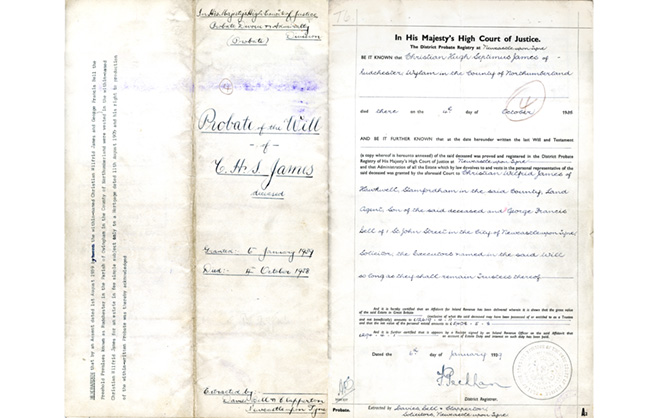 MEMORANDUM that by an Assent dated 1st August 1939 the withinnamed Christian Wilfrid James and George Francis Bell the
freehold Premises known as Rudchester in the Parish of Ovingham in the County of Northumberland were vested in the withinnamed
Christian Wilfrid James for an estate in fee simple subject only to a Mortgage dated 11th August 1926 and his right to production
of the withinwritten Probate was thereby acknowledged
In His Majesty's High Court of Justice
Probate Divorce & Admiralty
Division
(Probate)
Probate of the Will
- of -
C. H. S. James
deceased
Granted :- 6 January 1939
Died :- 4 October 1938
Extracted by :-
Davies Bell & Clapperton
Newcastle upon Tyne
In His Majesty's High Court of Justice.
The District Probate Registry at Newcastle upon Tyne
BE IT KNOWN that Christian Hugh Septimus James of
Rudchester Wylam in the County of Northumberland
died there on the 4th day of October 1938
14
AND BE IT FURTHER KNOWN that at the date hereunder written the last Will and Testament
(a copy whereof is hereunto annexed) of the said deceased was proved and registered in the District Probate
Registry of His Majesty's High Court of Justice at Newcastle upon Tyne
and that Administration of all the Estate which by law devolves to and vests in the personal representative of the
said deceased was granted by the aforesaid Court to Christian Wilfrid James of
Heugh, Stamfordham in the said County, Land
Agent, Son of the said deceased and George Francis
Bell of 1 St. John Street in the City of Newcastle upon Tyne
Solicitor, the Executors named in the said Will
so long as they shall remain Trustees thereof
And it is hereby certified that an Affidavit for Inland Revenue has been delivered wherein it is shewn that the gross value
of the said Estate in Great Britain
(exclusive of what the said deceased may have been possessed of or entitled to as a Trustee
and not beneficially) amounts to
and that the net value of the personal estate amounts to
And it is further certified that it appears by a Receipt signed by an Inland Revenue Officer on the said Affidavit that
on account of Estate Duty and interest on such duty has been paid.
Dated the 6th day of January 1939
District Registrar.
Probate.
Extracted by Davies Bell & Clapperton
Solicitors, Newcastle upon Tyne